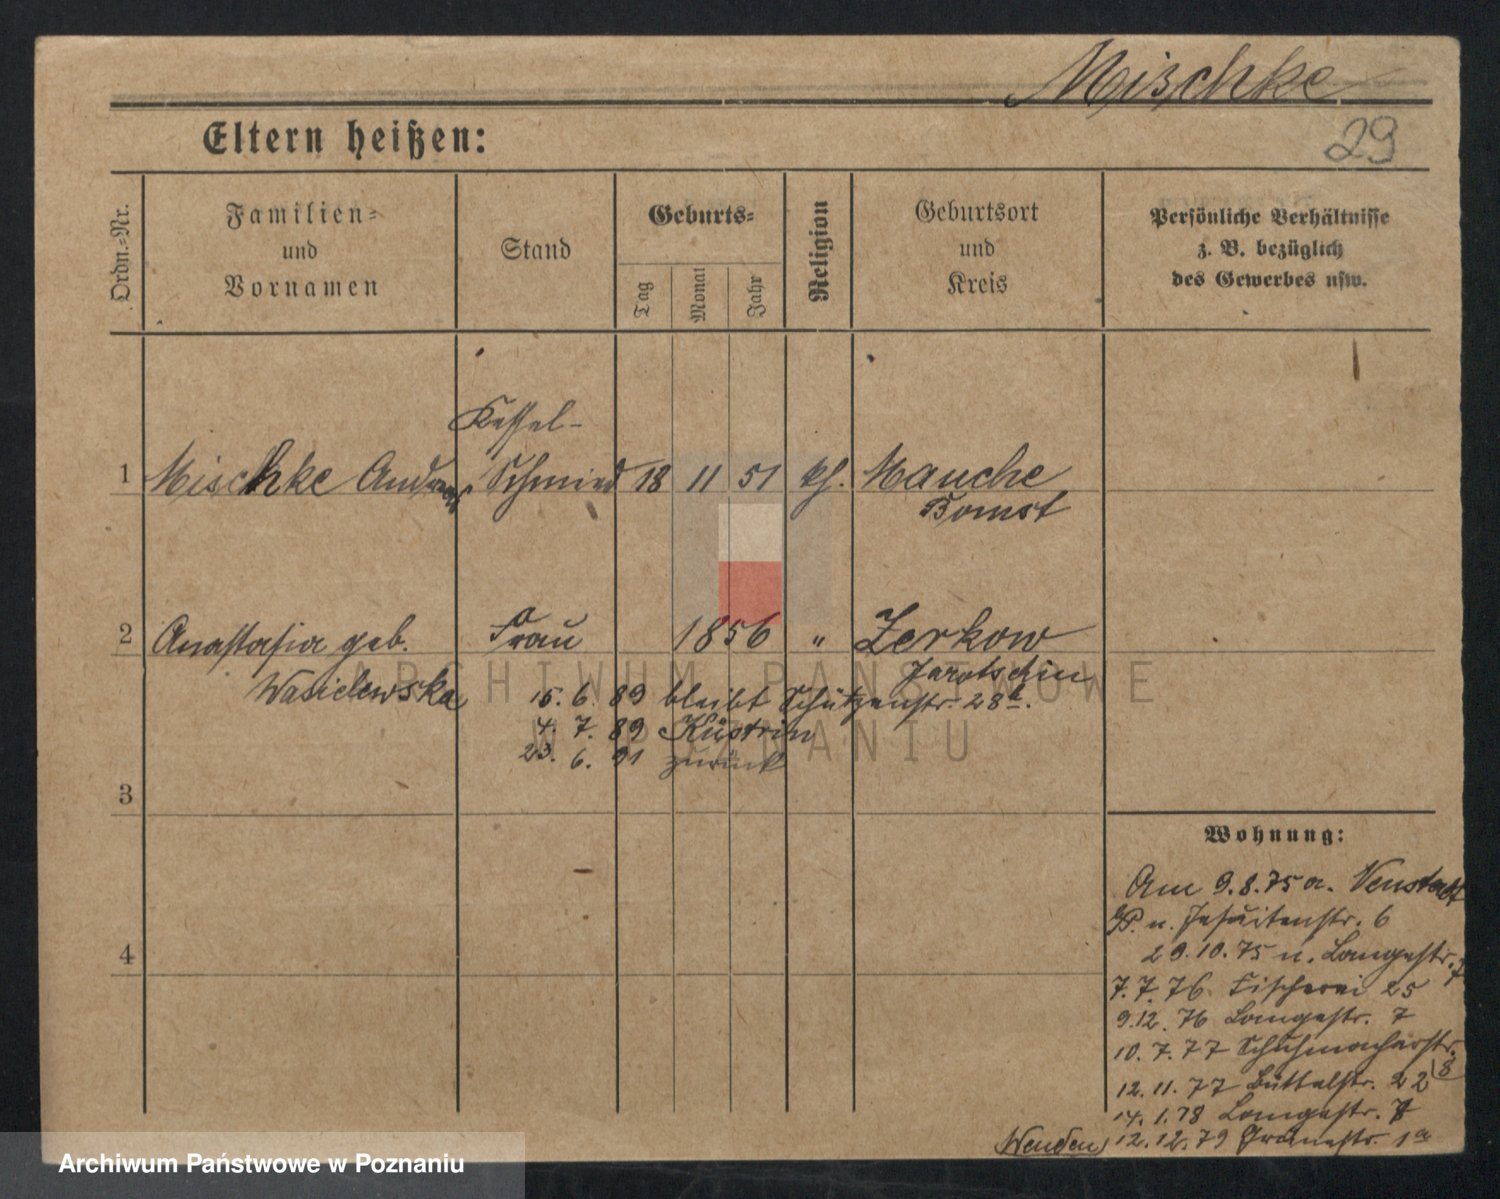 Mischke
29
Eltern heißen:
Ordn.-Nr.
Familien-
und
Vornamen
Stand
Geburts-
Tag
Monat
Jahr
Religion
Geburtsort
und
Kreis
Persönliche Verhältnisse
z. B. bezüglich
des Gewerbes usw.
Kessel-
1 Mischke Andreas Schmied 18 11 51 kh. Mauche
Bomst
2 Anastasia geb. Frau 1856 " Zerkow
Jarotschin
Wasielewska
15. 6. 89 bleibt Schützenstr. 28
4. 7. 89 Küstrin
23. 6. 91 zurück
3
4
Wohnung:
Am 9.8.75 a. Neustadt
n. Jesuitenstr. 6
29.10.75 n. Langestr. 7
7.7.76 Fischerei 25
9.12.76 Langestr. 7
10.7.77 Schuhmacherstr. 8
12.11.77 Büttelstr. 22
14.1.78 Langestr. 7
12.12.79 Grünestr. 1a
Wenden
ARCHIWUM PAŃSTWOWE
W POZNANIU
Archiwum Państwowe w Poznaniu